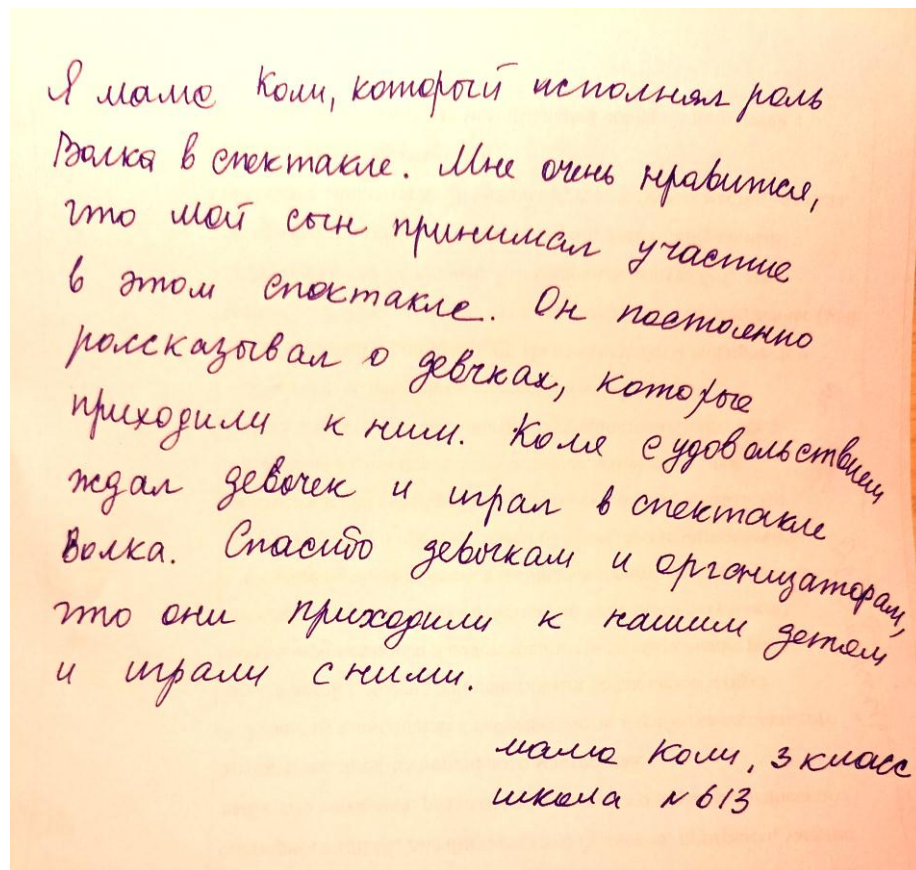 Я мама Коли, который исполнял роль
Волка в спектакле. Мне очень нравится,
что мой сын принимал участие
в этом спектакле. Он постоянно
рассказывал о девчках, которые
приходили к ним. Коля с удовольствием
ждал девочек и играл в спектакле
Волка. Спасибо девочкам и организаторам,
что они приходили к нашим детям
и играли с ними.
мама Коли, 3 класс
школа №613